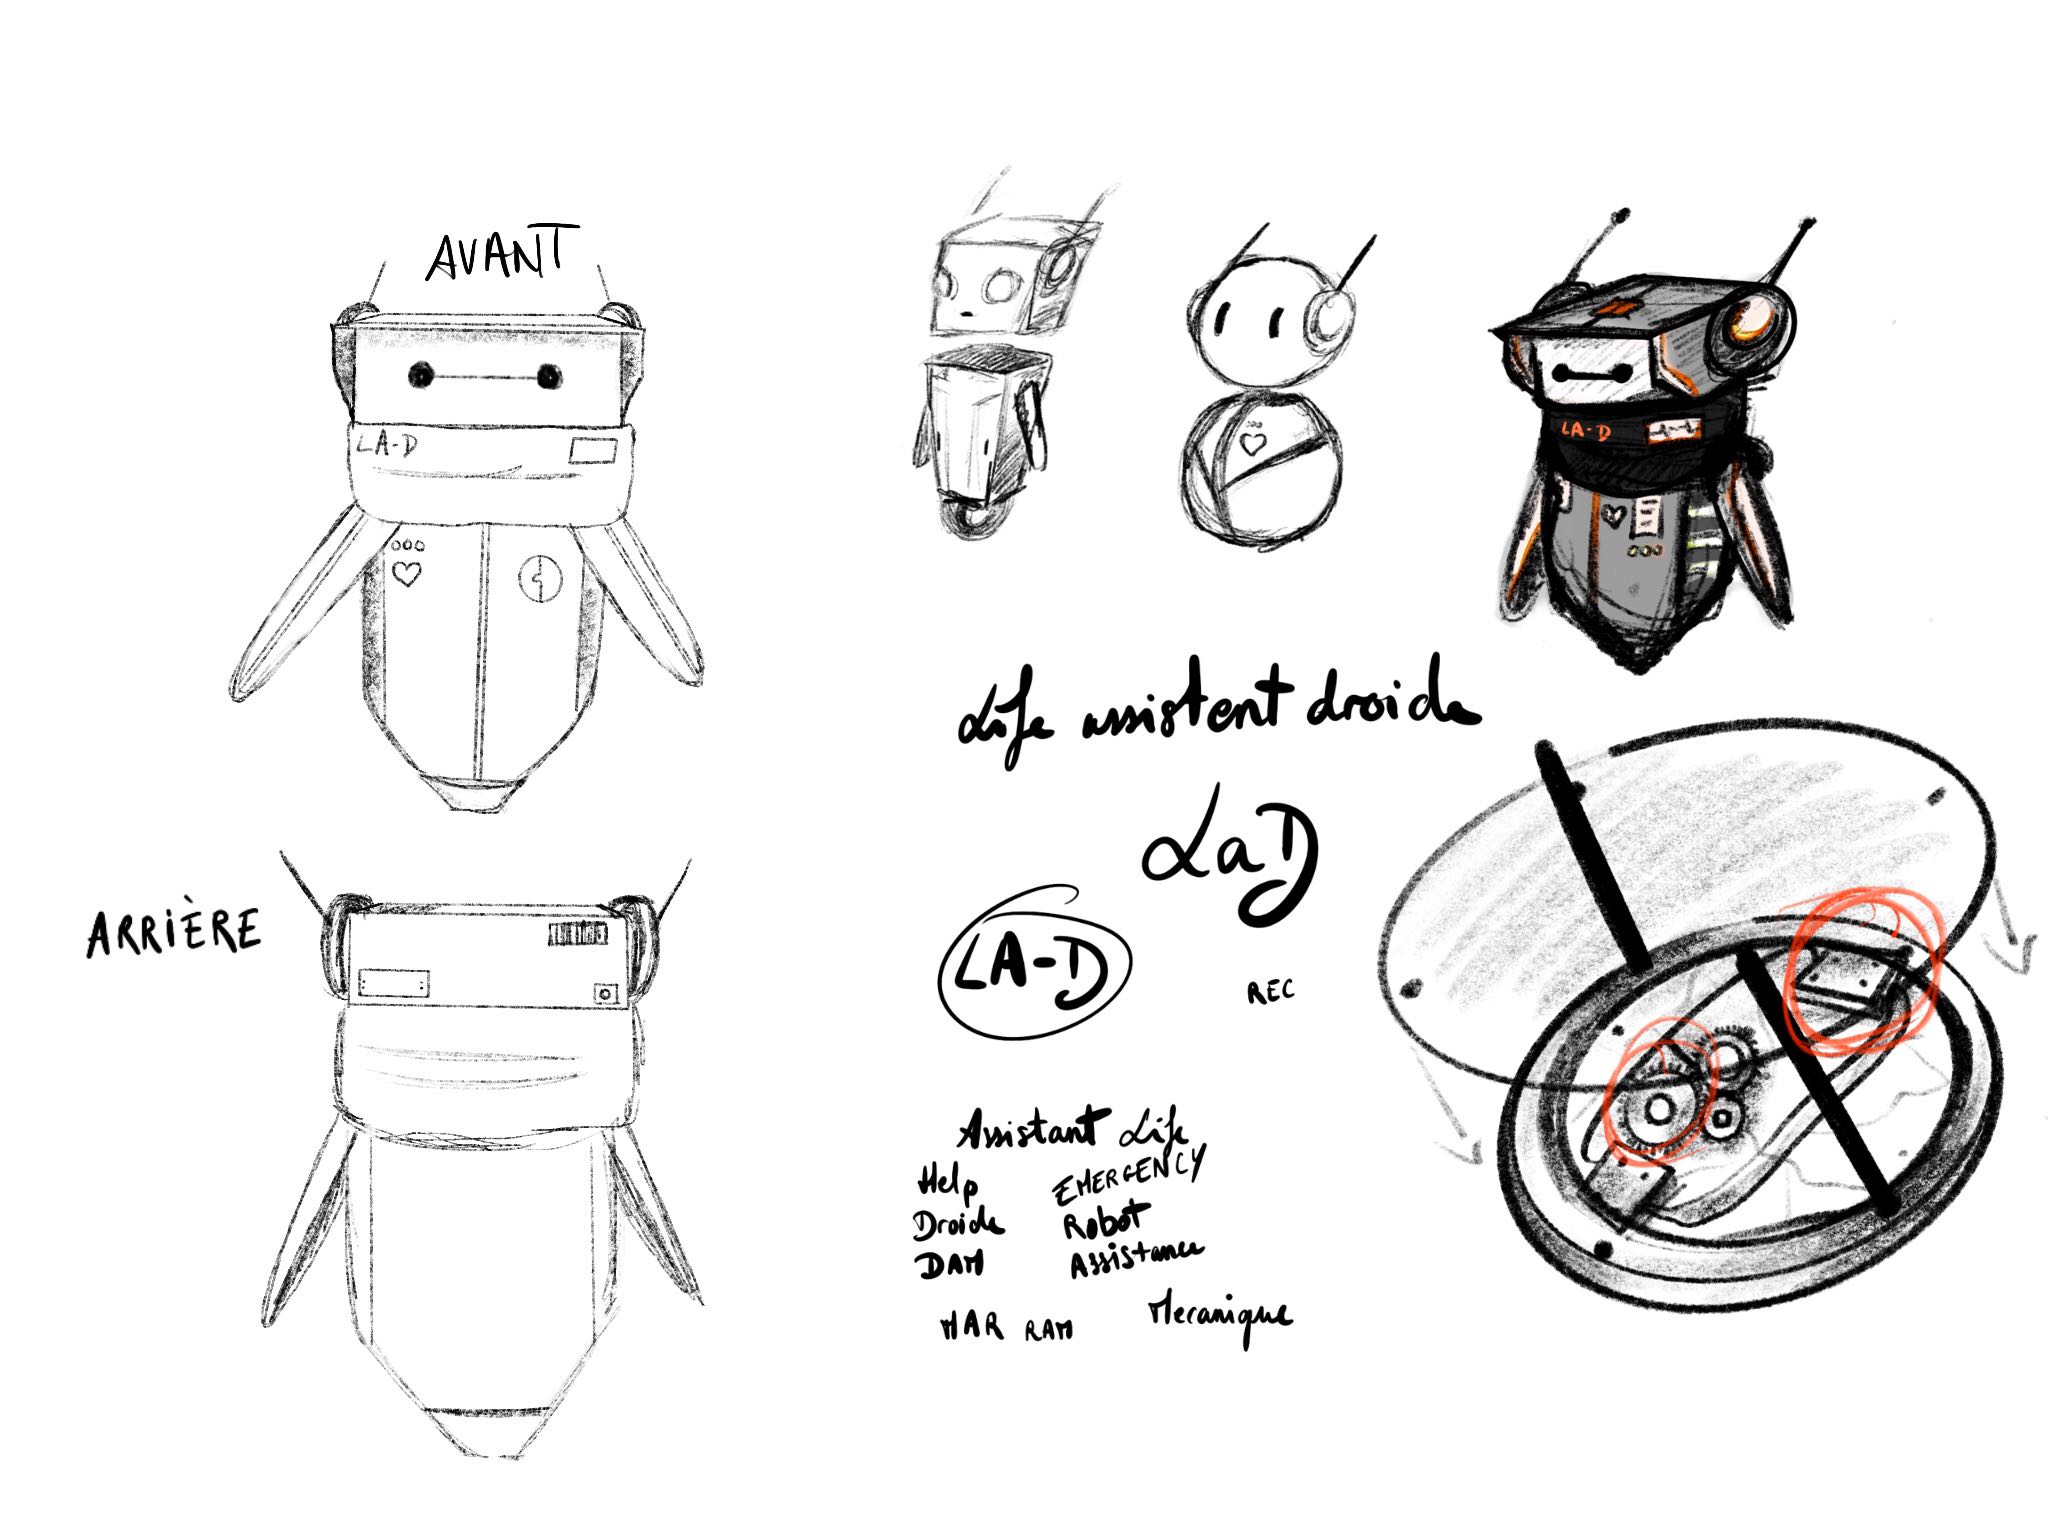 AVANT
LA-D
ARRIÈRE
LA-D
Life assistent droide
LaD
LA-D
REC
Assistant Life
Help EMERGENCY
Droide Robot
DAM Assistance
MAR RAM Mecanique